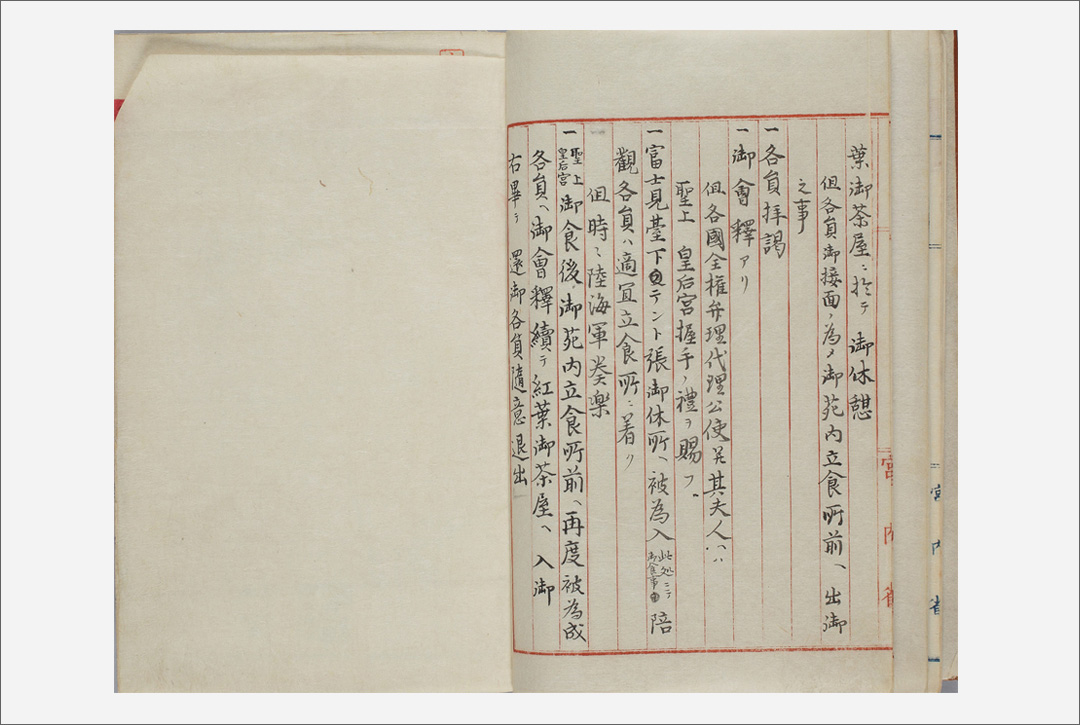 葉御茶屋ニ於テ 御休憩
但各員御接面ノ為メ御苑内立食所前ヘ出御
之事
一各員拝謁
一御會釋アリ
但各國全権弁理代理公使并其夫人ヘハ
聖上 皇后宮握手ノ禮ヲ賜フ
一富士見臺下テント張御休所ヘ被為入此処ニテ御食事陪
觀各員ハ適冝立食所ニ着ク
但時々陸海軍奏樂
一聖上皇后宮御食後御苑内立食所前ヘ再度被為成
各員ヘ御會釋續テ紅葉御茶屋ヘ入御
右畢テ還御各員隨意退出
宮内省
宮内省